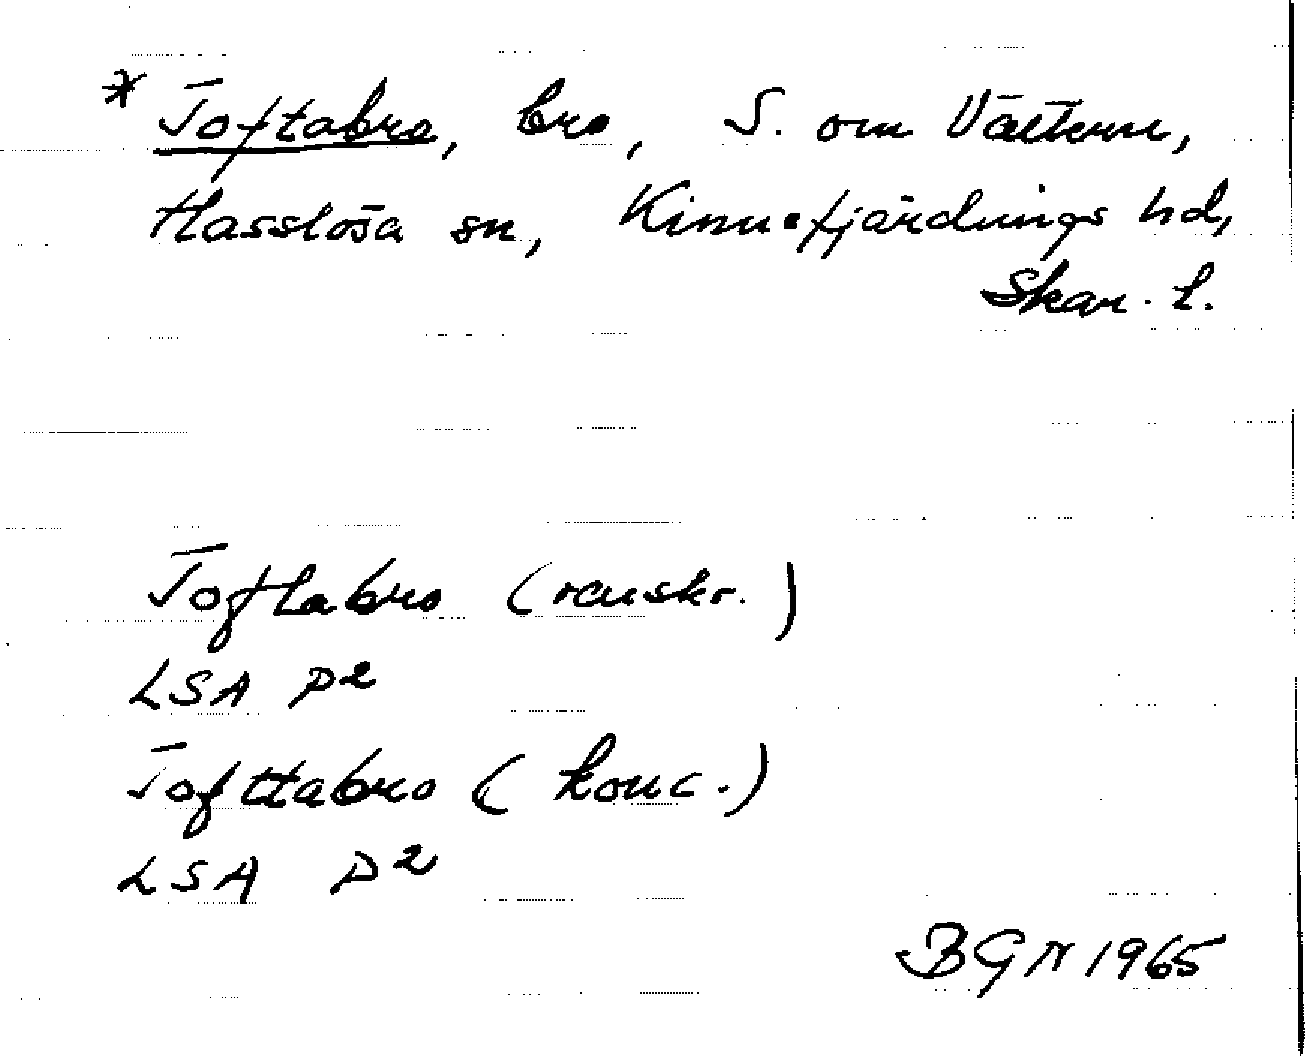 * Toftabro, bro, S. om Vättern,
Hasslösa sn, Kinnefjärdings hd,
Skar. l.
Toftabro (renskr.)
LSA P2
Tofttabro (konc.)
LSA P2
BGN 1965